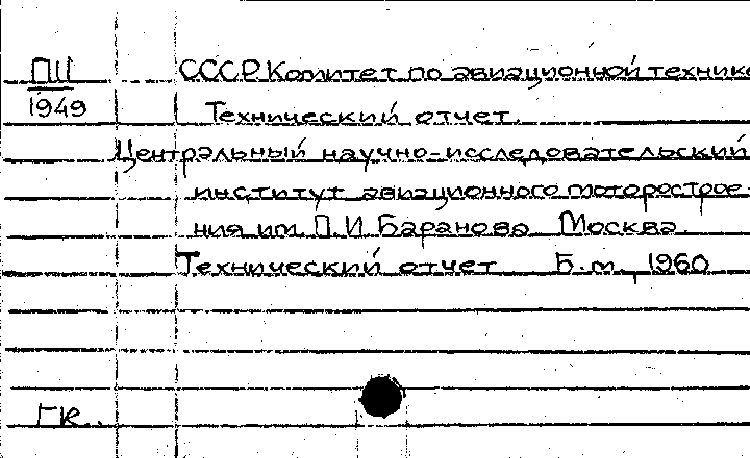 ПII СССР. Комитет по авиационной технике
1949 Технический отчет.
Центральный научно-исследовательский
институт авиационного моторострое-
ния им. П. И. Баранова Москва.
Технический отчет Б.м., 1960
ГК.